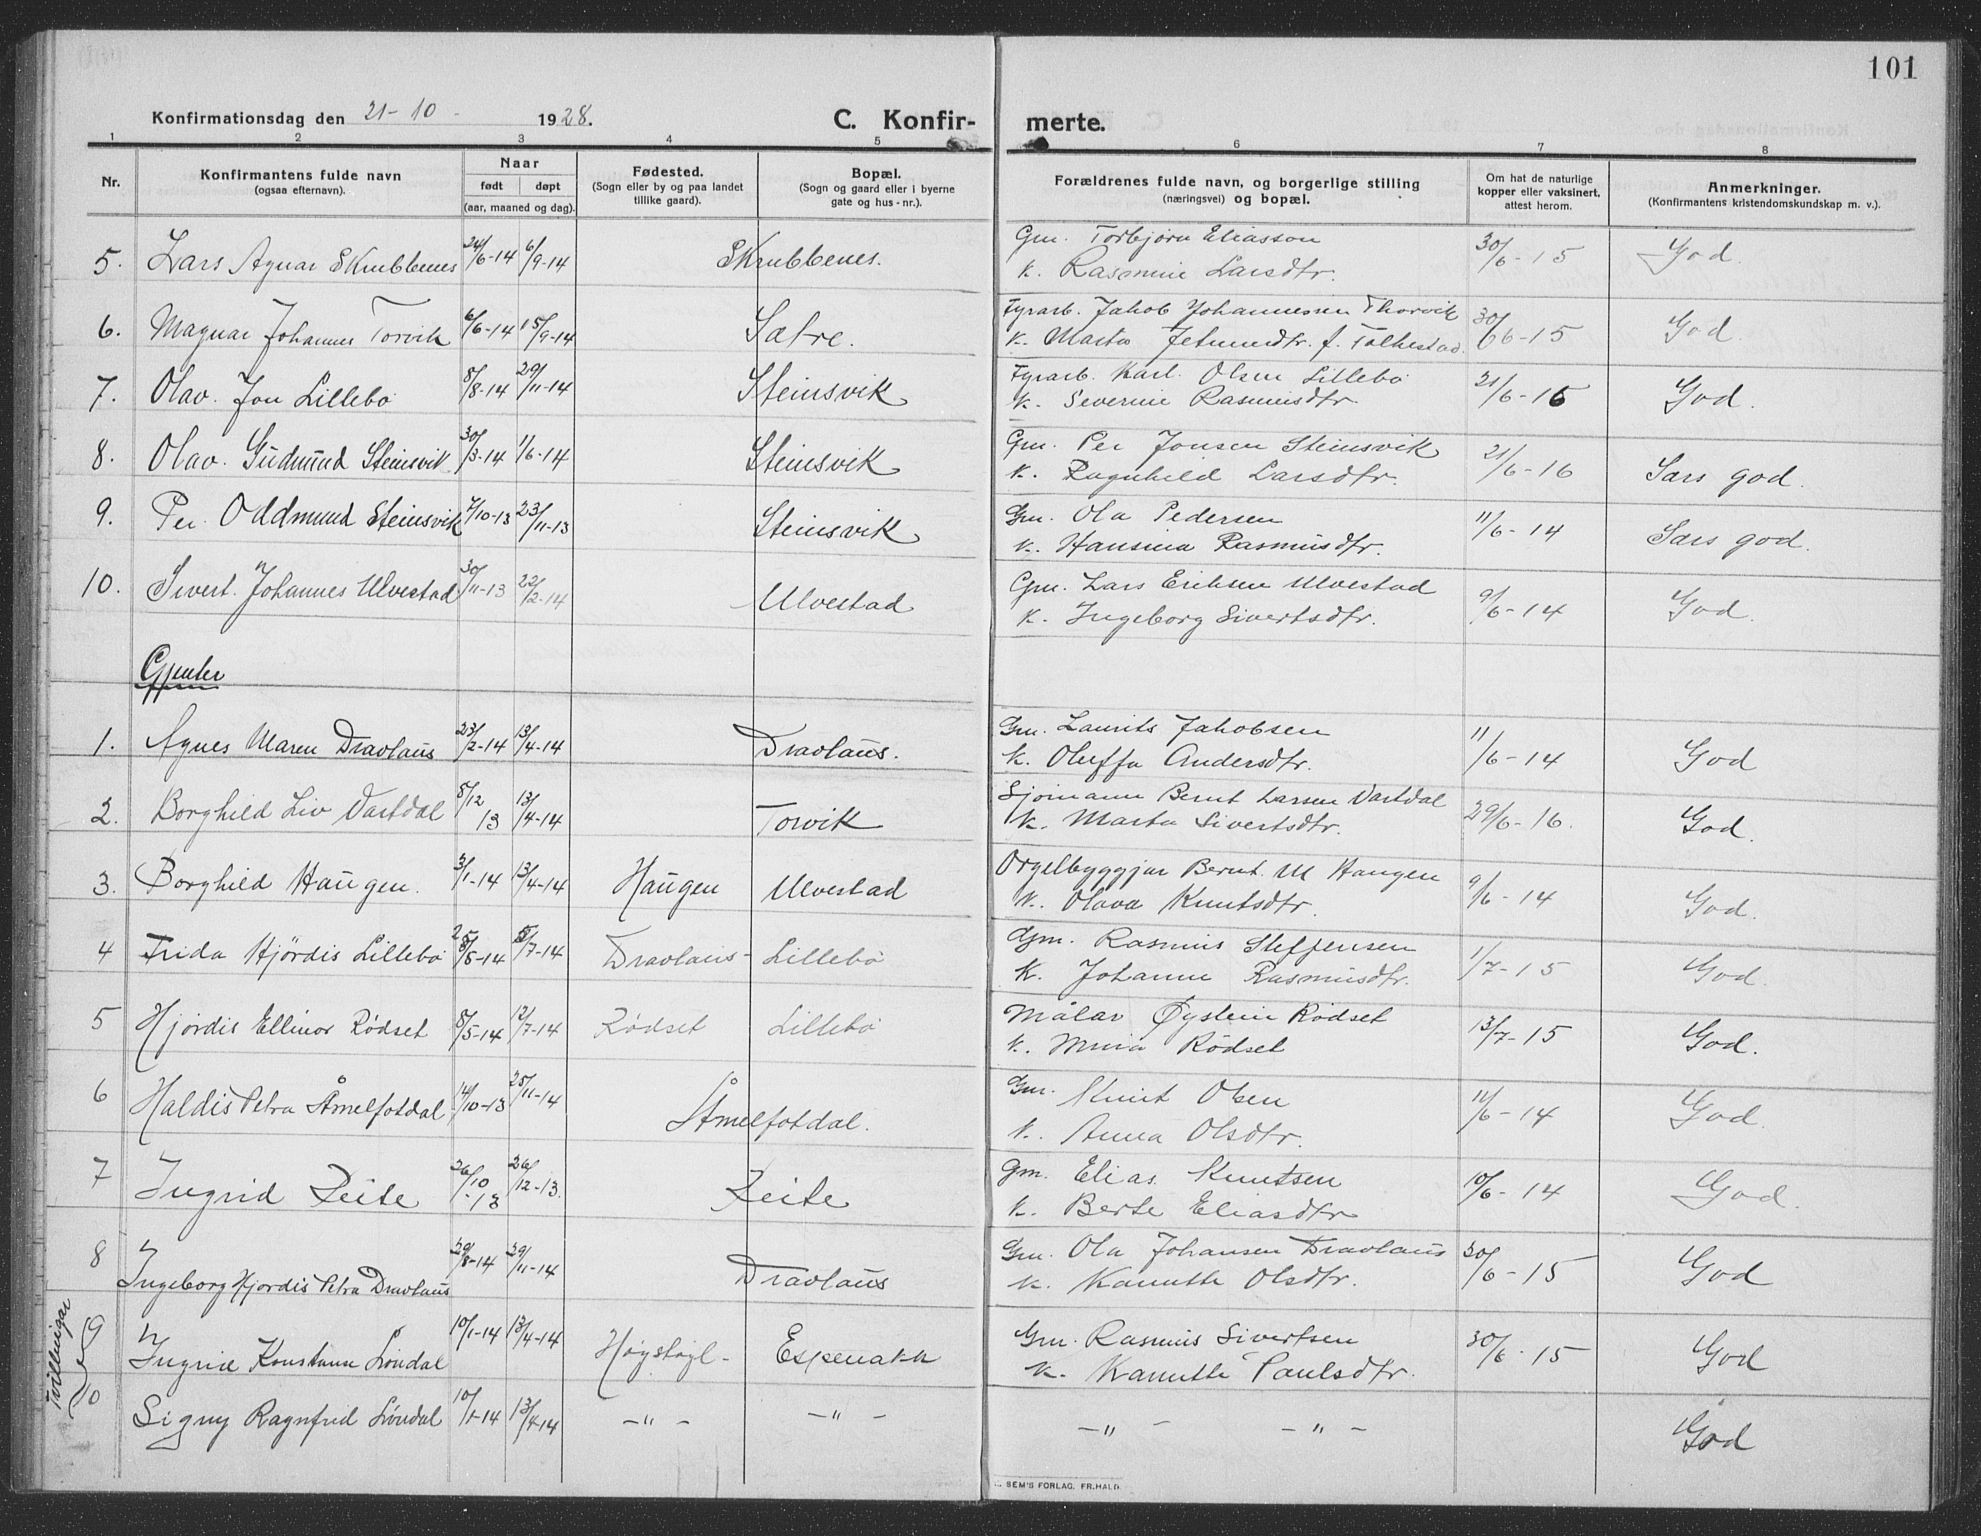 101
Konfirmationsdag den 21-10 - 1928. C. Konfir- merte.
1 2 3 4 5 6 7 8
Nr. Konfirmantens fulde navn (ogsaa efternavn). Naar født døpt (aar, maaned og dag). Fødested. (Sogn eller by og paa landet tillike gaard). Bopæl. (Sogn og gaard eller i byerne gate og hus-nr.). Forældrenes fulde navn, og borgerlige stilling (næringsvei) og bopæl. Om hat de naturlige kopper eller vaksinert, attest herom. Anmerkninger. (Konfirmantens kristendomskundskap m. v.).
5. Lars Agnar Skrubbenes 24/6-14 6/9-14 Skrubbenes. Gm. Torbjørn Eliasson 30/6-15 God.
k. Rasmine Larsdtr.
6. Magnar Johannes Torvik 6/6-14 15/9-14 Sætre. Fyrarb. Jakob Johannessen Thorvik 30/6-15 God.
k. Marta Jetmundtr. f. Folkestad.
7. Olav. Jon Lillebø 8/8-14 29/11-14 Steinsvik Fyrarb. Karl. Olsen Lillebø 21/6-16 God.
k. Severine Rasmusdtr.
8. Olav. Gudmund Steinsvik 30/3-14 1/6-14 Steinsvik Gm. Per Jonsen Steinsvik 21/6-16 Særs god.
k. Ragnhild Larsdtr.
9. Per. Oddmund Steinsvik 7/10-13 23/11-13 Steinsvik Gm. Ola Pedersen 11/6-14 Særs god.
k. Hansina Rasmusdtr.
10. Sivert. Johannes Ulvestad 30/11-13 22/2-14 Ulvestad Gm. Lars Eriksen Ulvestad 9/6-14 God.
k. Ingeborg Sivertsdtr.
Gjenter
1. Agnes Maren Dravlaus 23/2-14 13/4-14 Dravlaus. Gm. Laurits Jakobsen 11/6-14 God
k. Oluffa Andersdtr.
2. Borghild Liv Vartdal 8/12 13 13/4-14 Torvik Sjømann Bernt Larsen Vartdal 29/6-16. God.
k. Marta Sivertsdtr.
3. Borghild Haugen. 3/1-14 13/4-14 Haugen Ulvestad Orgelbyggjar Bernt. M Haugen 9/6-14 God.
k. Olava Knutsdtr.
4 Frida Hjördis Lillebø 25/5-14 5/7-14 Dravlaus - Lillebø Gm. Rasmus Steffensen 1/7-15 God.
k. Johanne Rasmusdtr.
5 Hjördis Ellinor Rödset 8/5-14 12/7-14 Rödset Lillebø Målar Øystein Rödset 13/7-15 God.
k. Mina Rödset
6 Haldis Petra Åmelfotdal 14/10-13 25/11-14 Åmelfotdal. Gm. Knut Olsen 11/6-14 God
k. Anna Olsdtr.
7 Ingrid Leite 26/10-13 26/12-13. Leite Gm. Elias Knutsen 10/6-14 God.
k. Berte Eliasdtr
8 Ingeborg Hjordis Petra Dravlaus 29/8-14 29/11-14 Dravlaus Gm. Ola Johansen Dravlaus 30/6-15 God
k. Kanutte Olsdtr.
Tvillingar
9 Ingrid Konstanse Løvdal 10/1-14 13/4-14 Høgstøyl - Espenakk Gm. Rasmus Sivertsen 30/6-15 God
k. Kanutte Paulsdtr.
10 Signy Ragnfrid Løvdal 10/1-14 13/4-14 -"- -"- -"- -"- God
SEM'S FORLAG. FR.HALD.